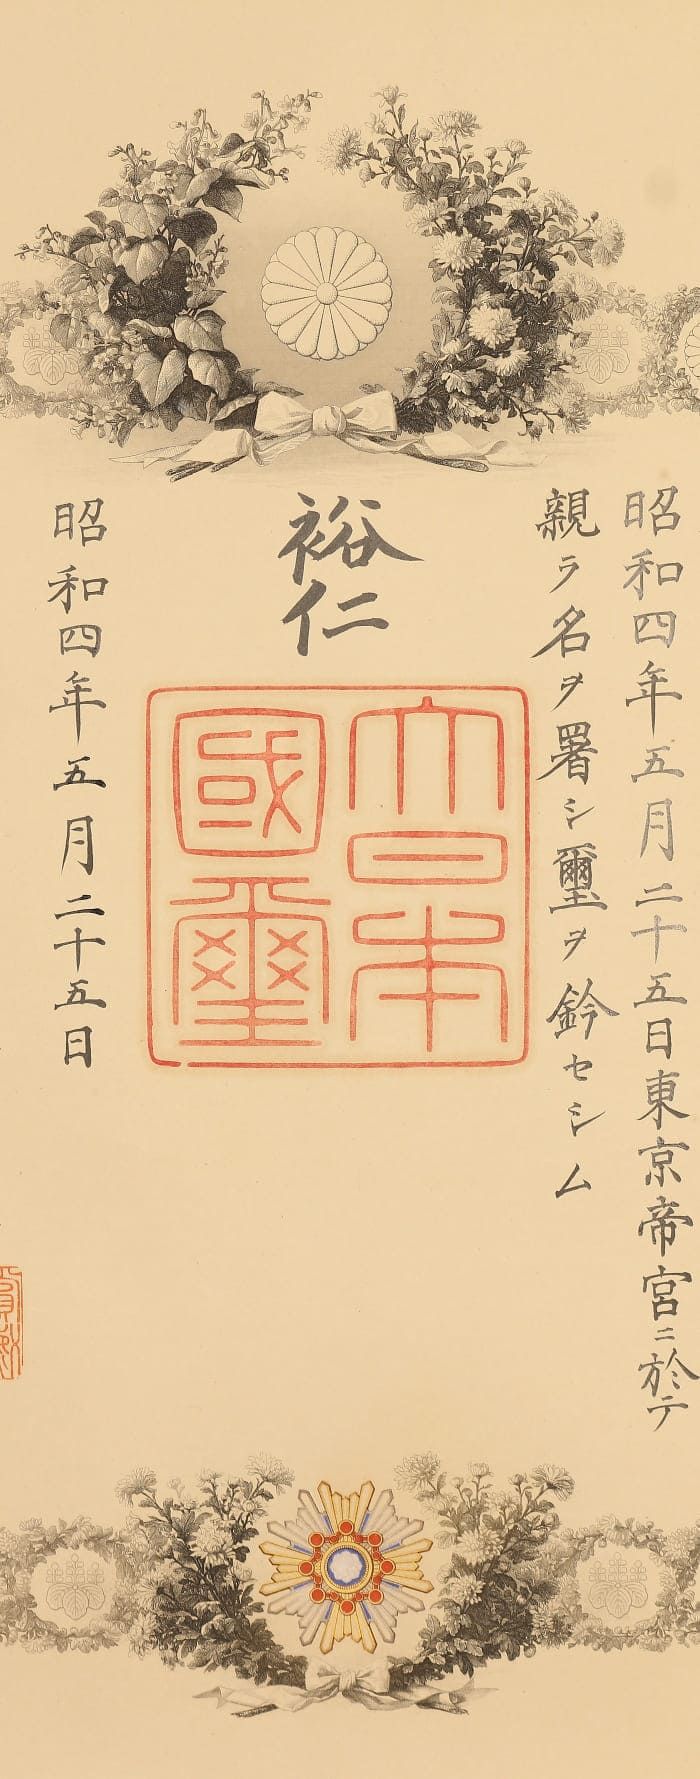 昭和四年五月二十五日東京帝宮ニ於テ
親ラ名ヲ署シ璽ヲ鈐セシム
裕仁
大日本
國璽
昭和四年五月二十五日